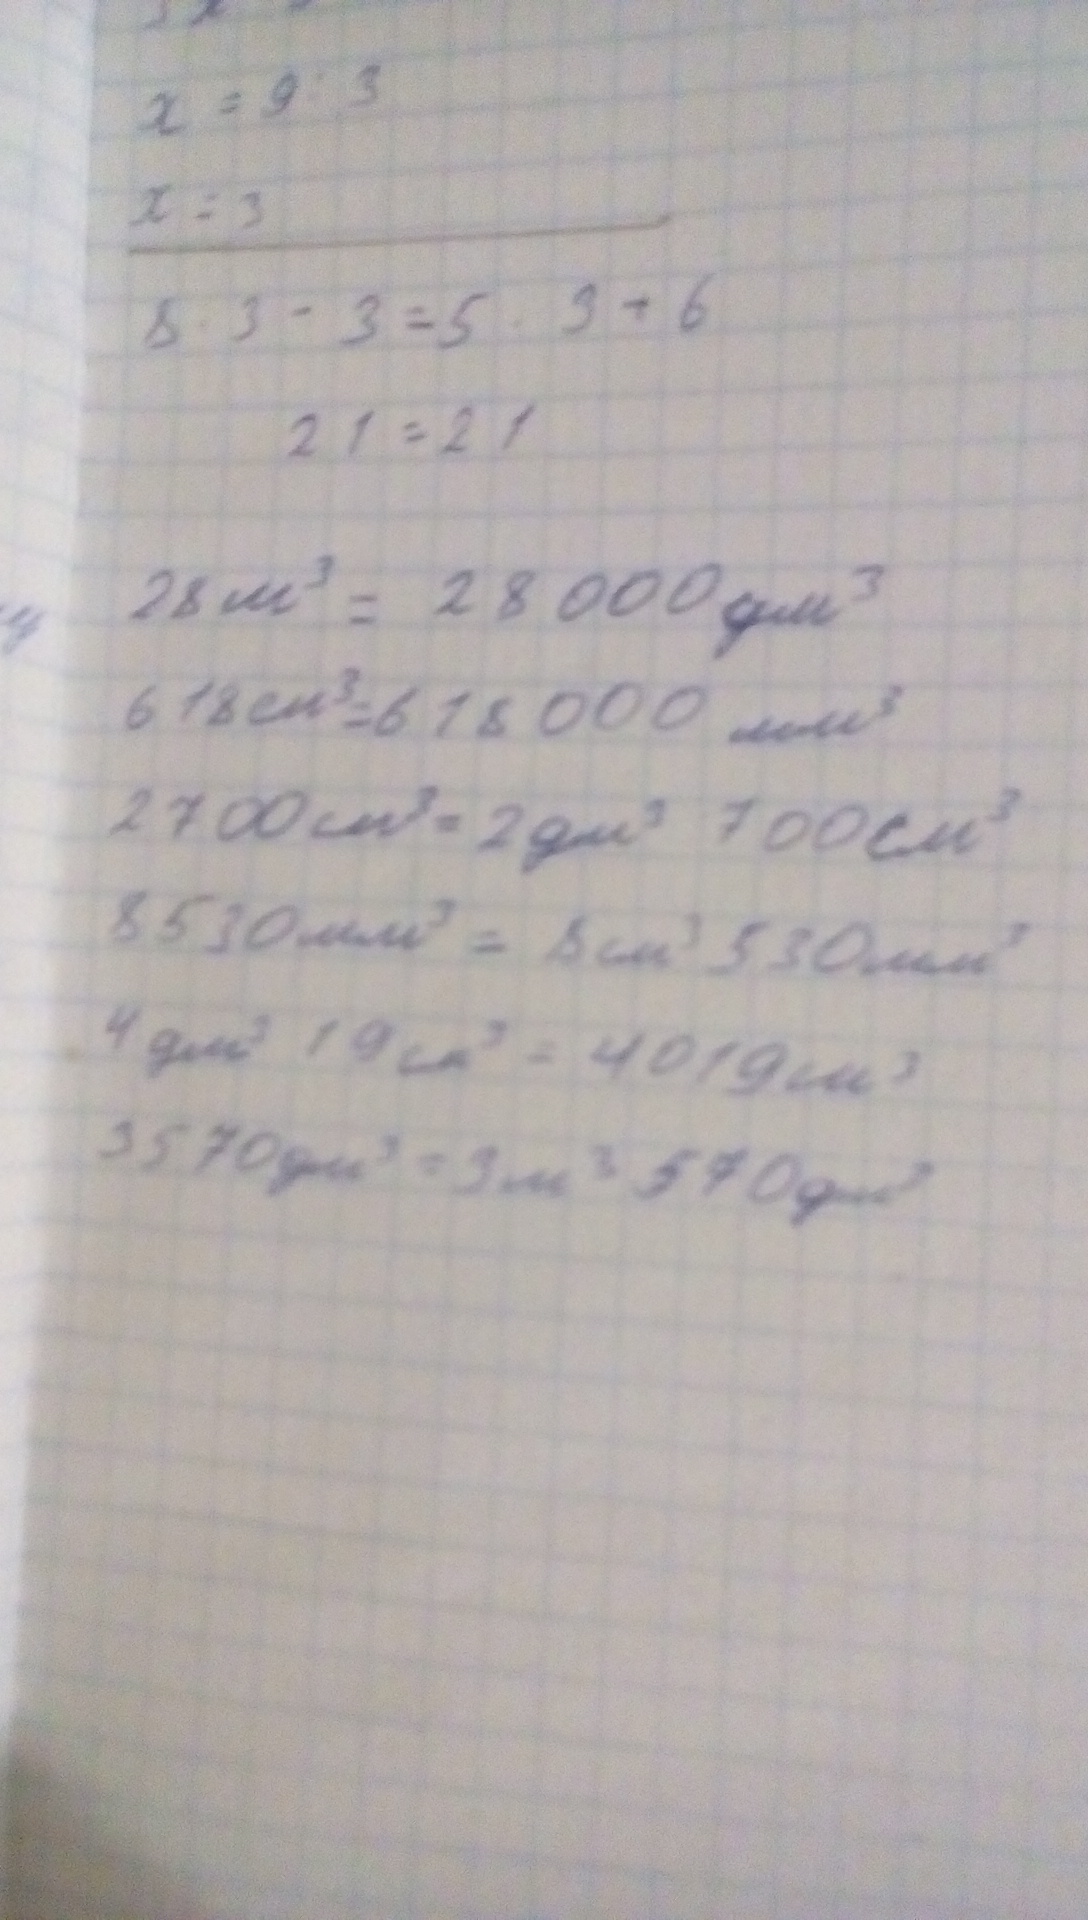 x = 9 : 3
x = 3
8 · 3 - 3 = 5 · 3 + 6
21 = 21
28 м³ = 28 000 дм³
618 см³ = 618 000 мм³
2700 см³ = 2 дм³ 700 см³
8530 мм³ = 8 см³ 530 мм³
4 дм³ 19 см³ = 4019 см³
3570 дм³ = 3 м³ 570 дм³